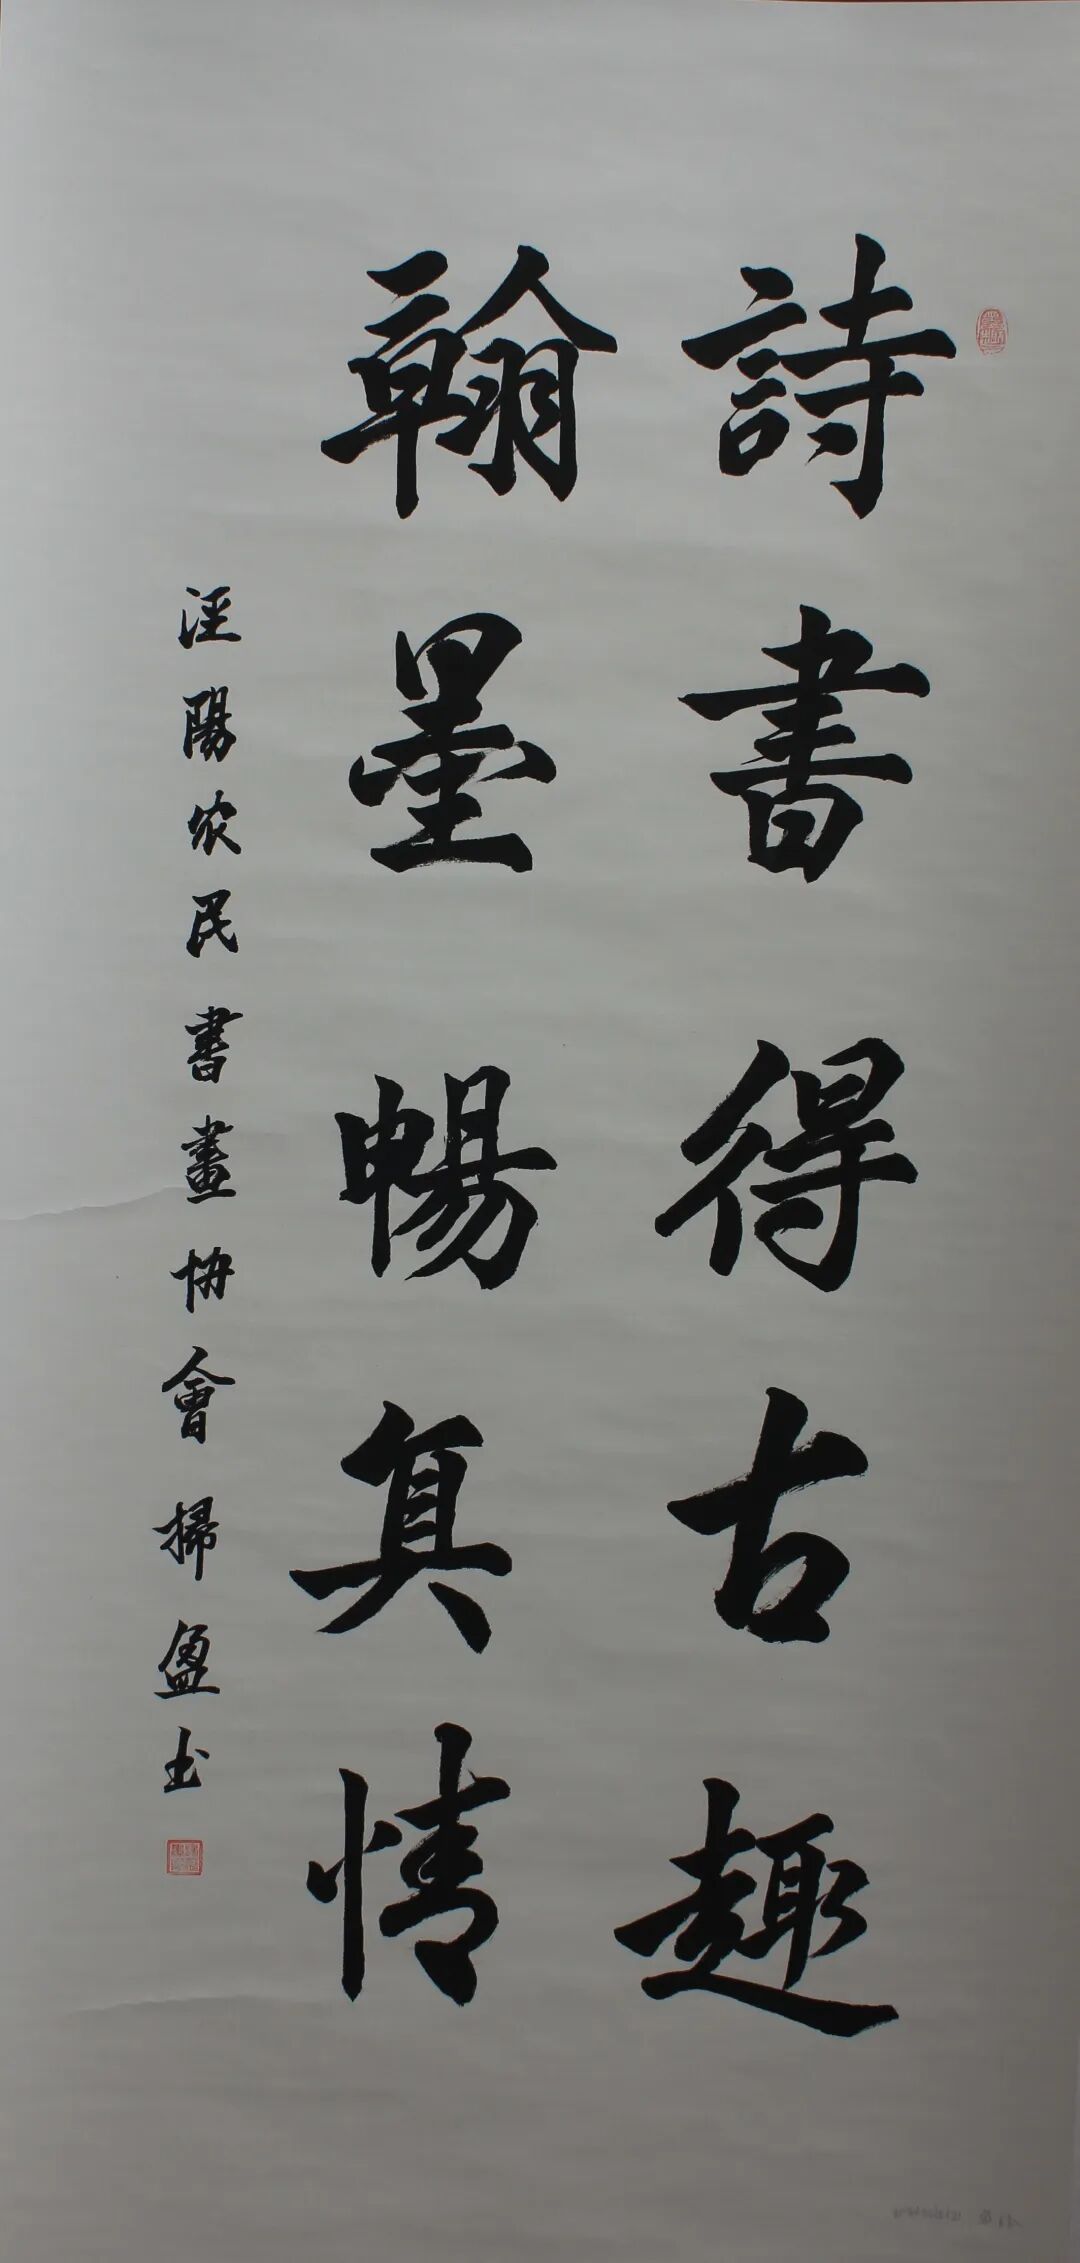 詩書得古趣
翰墨暢真情
涇陽农民書畫协會掃盈书